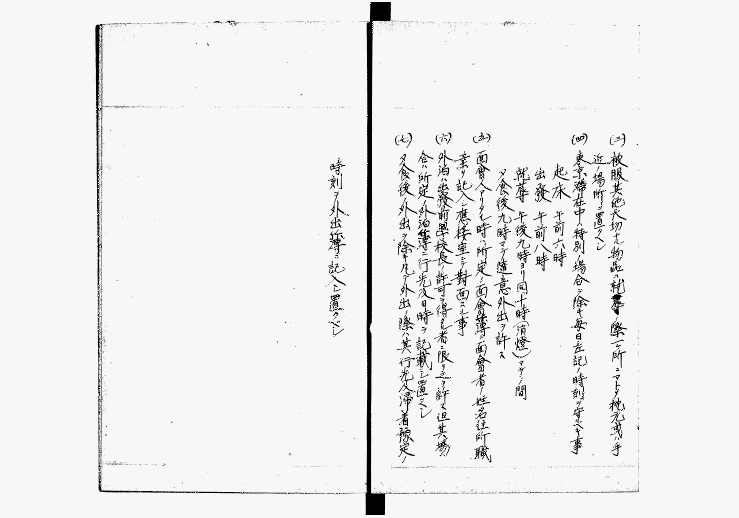 (三)被服其他大切ナル物品ハ就寢ノ際一ヶ所ニマトメ枕元或ハ手
近ノ場所ニ置クベシ
(四)東京滯在中ハ特別ノ場合ヲ除キ毎日左記ノ時刻ヲ守ルベキ事
起床 午前六時
出發 午前八時
就寢 午後九時ヨリ同十時(消燈)マデノ間
夕食後九時マデ隨意外出ヲ許ス
(五)面會人アリタル時ハ所定ノ面會簿ニ面會者ノ姓名住所職
業ヲ記入シ應接室ニテ對面スル事
(六)外泊ハ出發前學校長ノ許可ヲ得タル者ニ限リ之ヲ許ス但其場
合ハ所定ノ外泊簿ニ行先及日時ヲ記載シ置クベシ
(七)夕食後ノ外出ヲ除キ凡テ外出ノ際ハ其行先及歸着豫定ノ
時刻ヲ外出簿ニ記入シ置クベシ